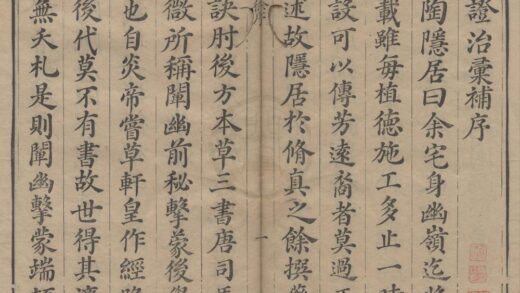 證治彙補序
陶隱居曰余宅身幽嶺迄將
載雖每植德施工多止一時
設可以傳芳遠裔者莫過
述故隱居於脩真之餘撰
一
訣肘後方本草三書唐司
微所稱闡幽前秘擊蒙後
也自炎帝嘗草軒皇作經
後代莫不有書故世得其
無夭札是則闡幽擊蒙端